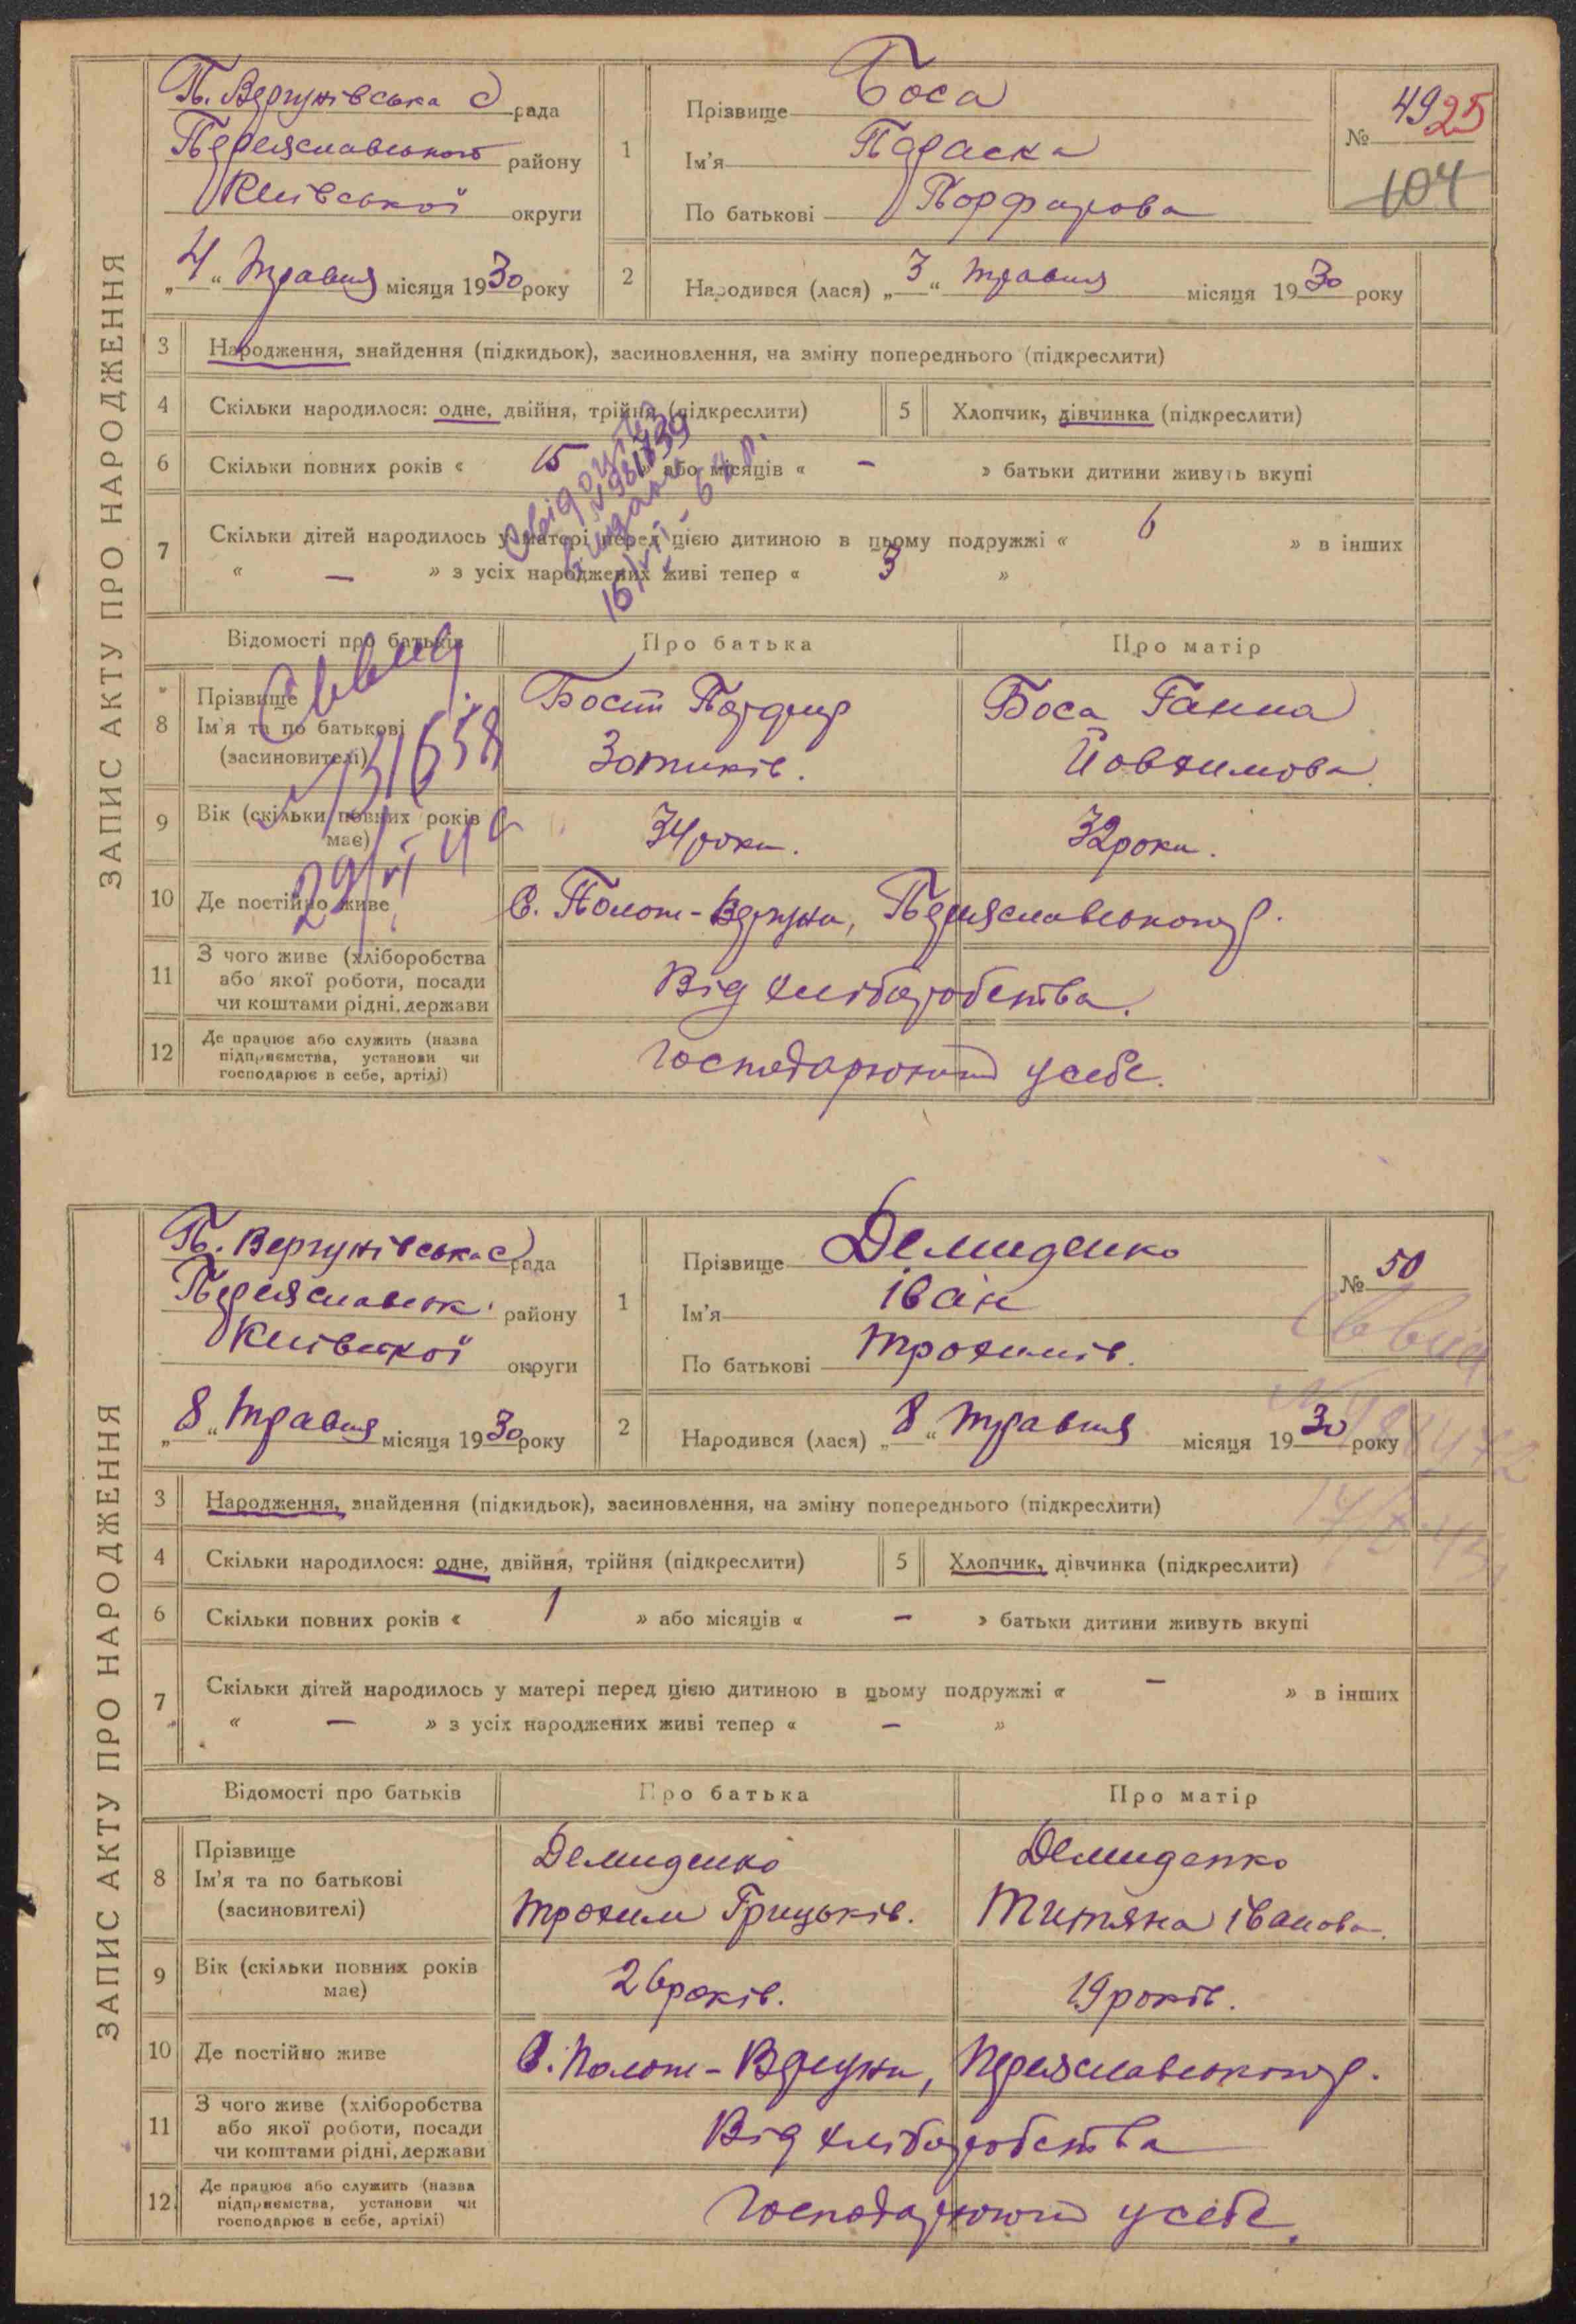 ЗАПИС АКТУ ПРО НАРОДЖЕННЯ
П. Вергунівська с рада
Переяславського району
Київської округи
„4“ травня місяця 1930 року
1
Прізвище Боса
Ім'я Параска
По батькові Порфирова
№ 49 25
104
2
Народився (лася) „3“ травня місяця 1930 року
3 Народження, знайдення (підкидьок), засиновлення, на зміну попереднього (підкреслити)
4 Скільки народилося: одне, двійня, трійня (підкреслити) 5 Хлопчик, дівчинка (підкреслити)
6 Скільки повних років « 15 » або місяців « – » батьки дитини живуть вкупі
7 Скільки дітей народилось у матері перед цією дитиною в цьому подружжі « 6 » в інших
« – » з усіх народжених живі тепер « 3 »
Відомості про батьків Про батька Про матір
8 Прізвище
Ім'я та по батькові
(засновителі)
Босий Порфир
Зотиків.
Боса Ганна
Йовхимова.
9 Вік (скільки повних років має) 34 роки. 32 роки.
10 Де постійно живе С. Полог-Вергуни, Переяславського р.
11 З чого живе (хліборобства
або якої роботи, посади
чи коштами рідні, держави
Від хліборобства.
12 Де працює або служить (назва
підприємства, установи чи
господарює в себе, артілі)
Господарюють у себе.
ЗАПИС АКТУ ПРО НАРОДЖЕННЯ
П. Вергунівська с рада
Переяславськ. району
Київської округи
„8“ травня місяця 1930 року
1
Прізвище Демиденко
Ім'я Іван
По батькові Трохимів.
№ 50
2
Народився (лася) „8“ травня місяця 1930 року
3 Народження, знайдення (підкидьок), засиновлення, на зміну попереднього (підкреслити)
4 Скільки народилося: одне, двійня, трійня (підкреслити) 5 Хлопчик, дівчинка (підкреслити)
6 Скільки повних років « 1 » або місяців « – » батьки дитини живуть вкупі
7 Скільки дітей народилось у матері перед цією дитиною в цьому подружжі « – » в інших
« – » з усіх народжених живі тепер « – »
Відомості про батьків Про батька Про матір
8 Прізвище
Ім'я та по батькові
(засиновителі)
Демиденко
Трохим Грицьків.
Демиденко
Титяна Іванова.
9 Вік (скільки повних років має) 26 років. 19 років.
10 Де постійно живе С. Полог-Вергуни, Переяславського р.
11 З чого живе (хліборобства
або якої роботи, посади
чи коштами рідні, держави
Від хліборобства
12 Де працює або служить (назва
підприємства, установи чи
господарює в себе, артілі)
Господарюють у себе.